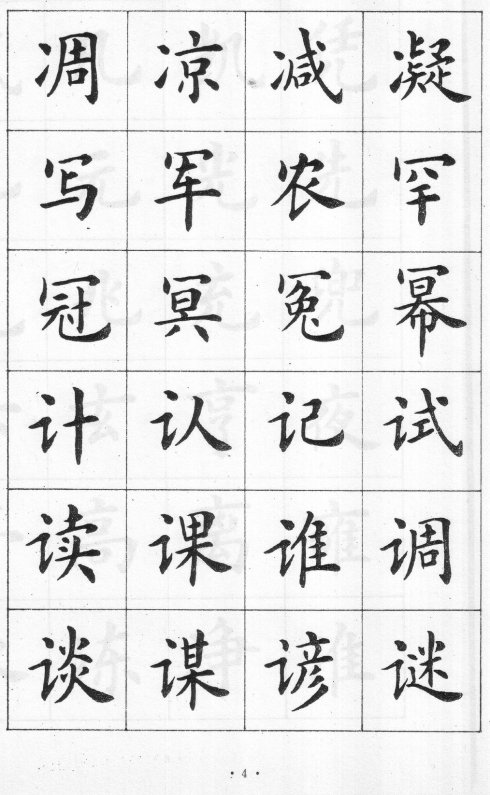 凋凉减凝
写军农罕
冠冥冤幂
计认记试
读课谁调
谈谋谚谜
· 4 ·